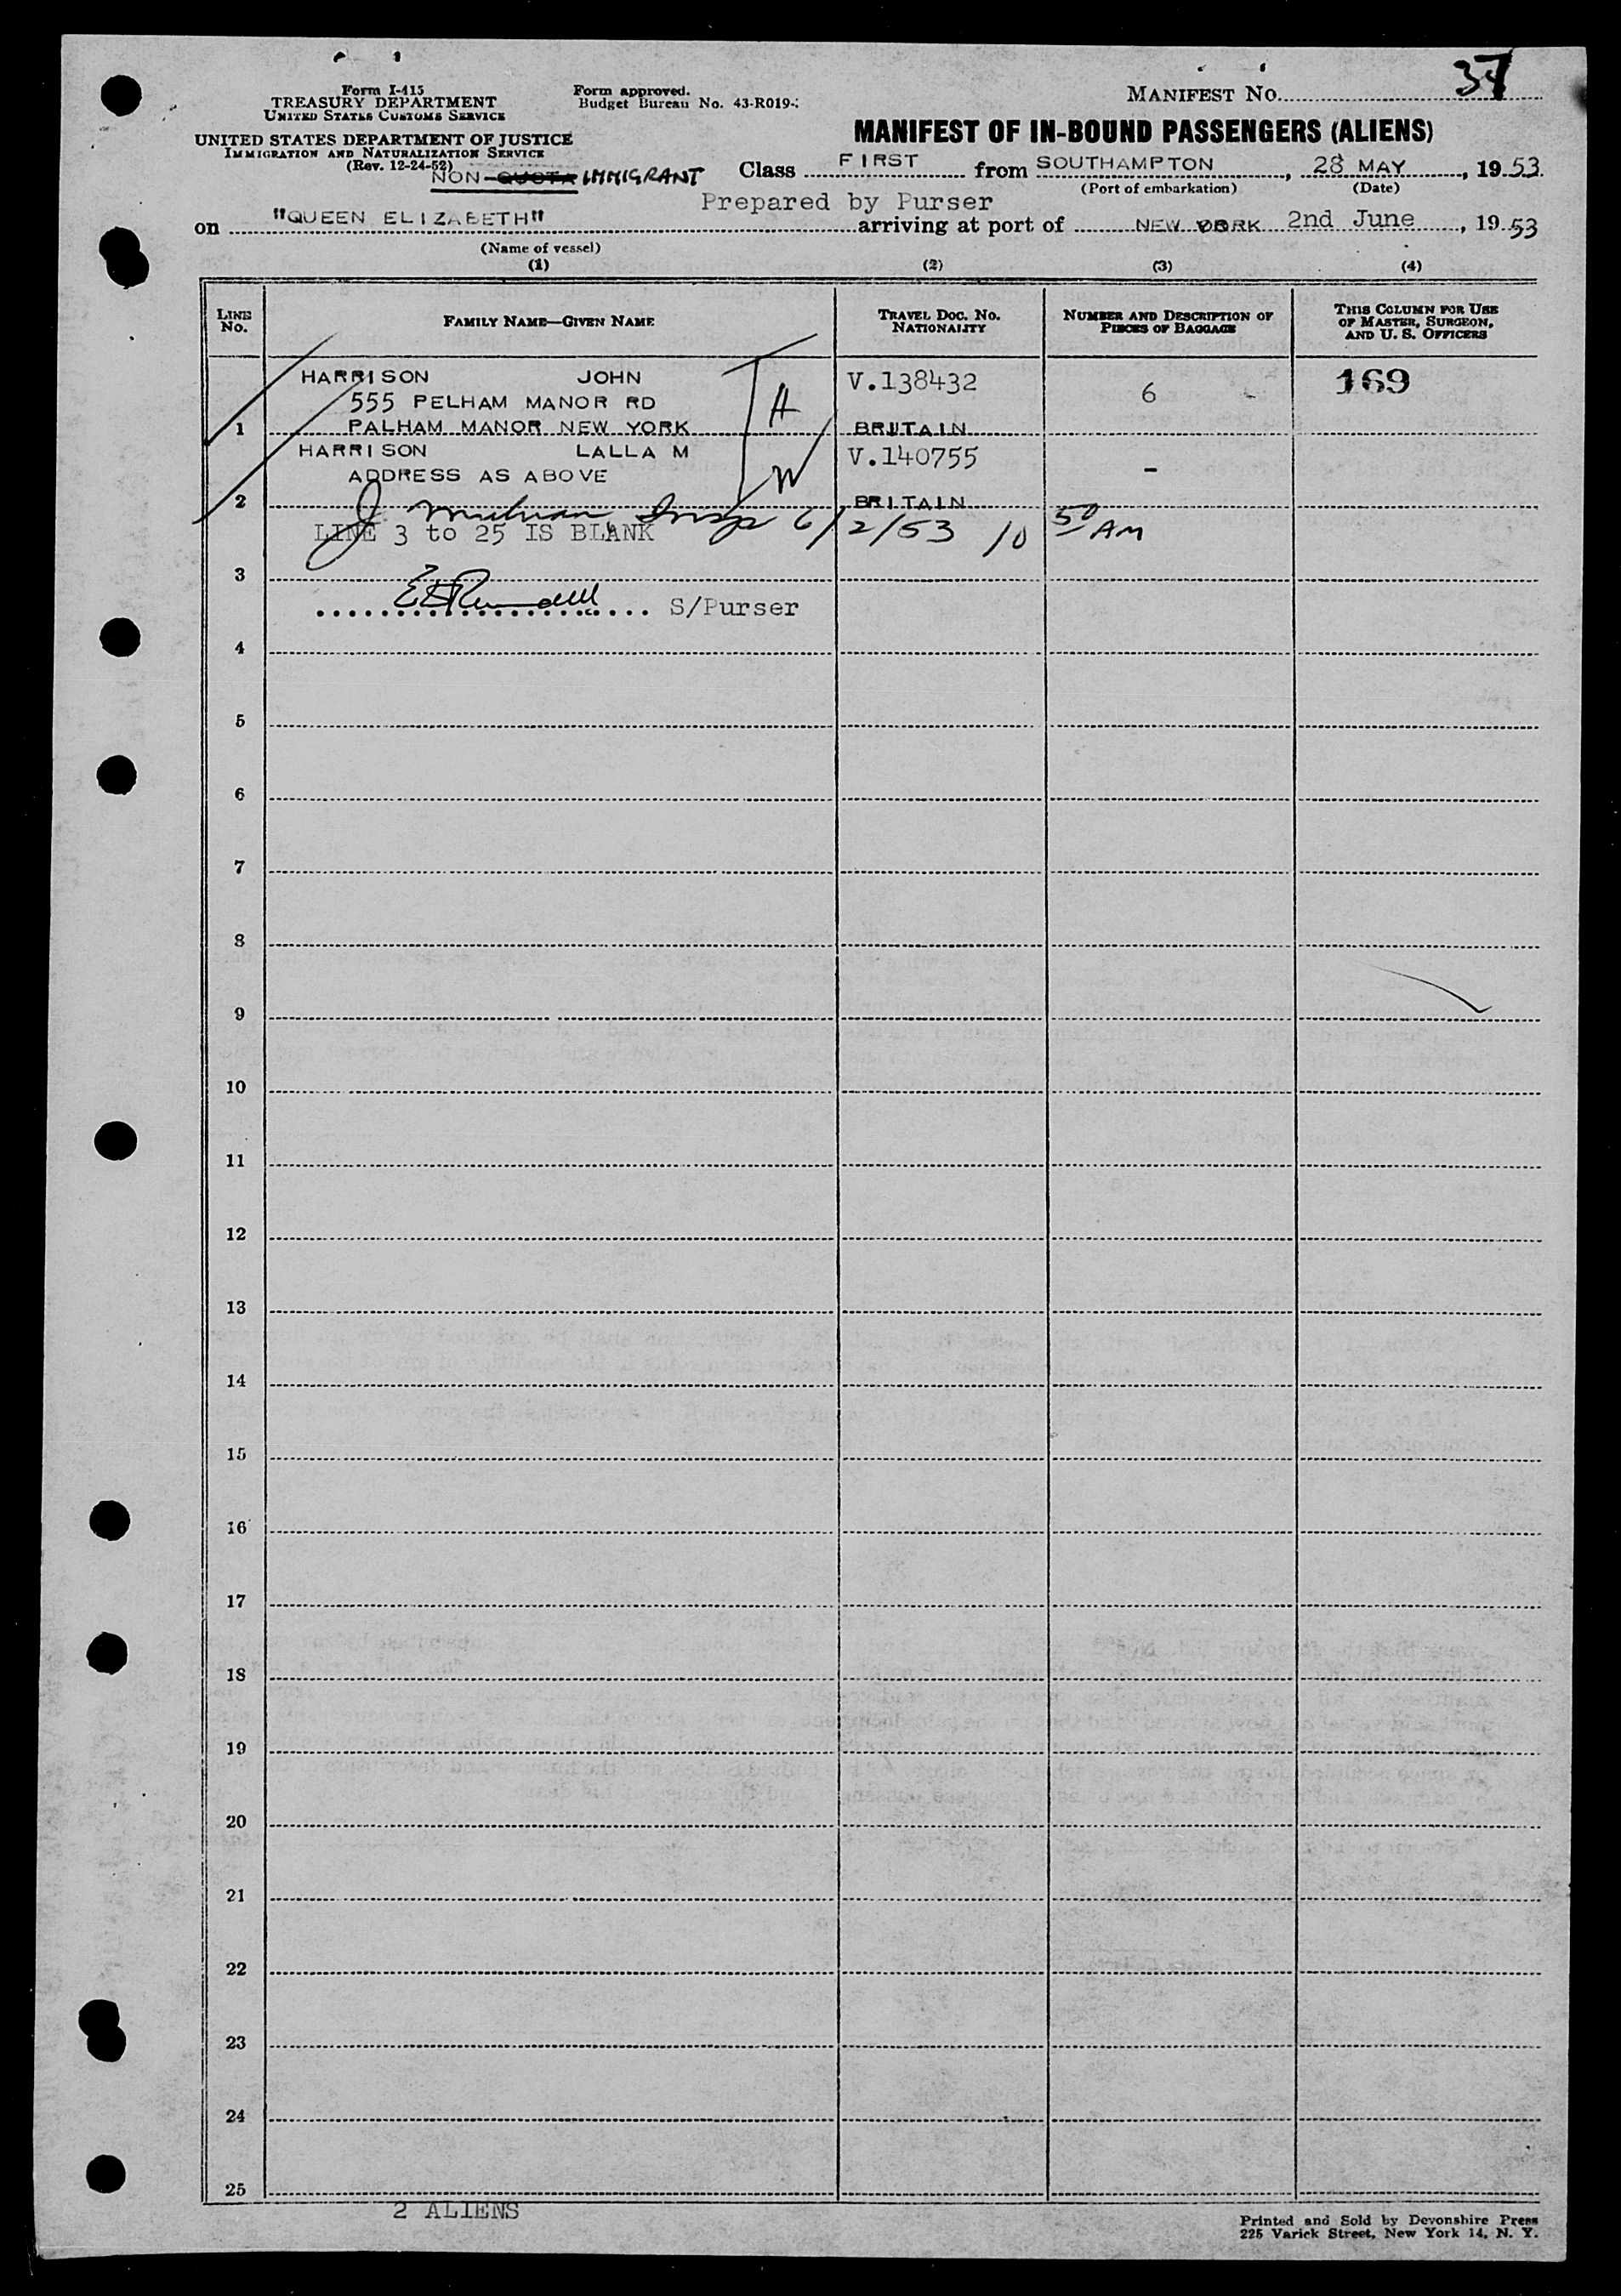 Form I-415
TREASURY DEPARTMENT
UNITED STATES CUSTOMS SERVICE
UNITED STATES DEPARTMENT OF JUSTICE
IMMIGRATION AND NATURALIZATION SERVICE
(Rev. 12-24-52)
NON QUOTA IMMIGRANT
Form approved.
Budget Bureau No. 43-R019-
MANIFEST No. 37
MANIFEST OF IN-BOUND PASSENGERS (ALIENS)
Class FIRST from SOUTHAMPTON, 28 MAY, 1953
(Port of embarkation) (Date)
Prepared by Purser
on "QUEEN ELIZABETH" arriving at port of NEW YORK 2nd June, 1953
(Name of vessel)
(1) (2) (3) (4)
LINE No. FAMILY NAME—GIVEN NAME TRAVEL DOC. NO. NATIONALITY NUMBER AND DESCRIPTION OF PIECES OF BAGGAGE THIS COLUMN FOR USE OF MASTER, SURGEON, AND U. S. OFFICERS
HARRISON JOHN V.138432 6 169
555 PELHAM MANOR RD H
1 PALHAM MANOR NEW YORK BRITAIN
HARRISON LALLA M V.140755 -
ADDRESS AS ABOVE W
2 BRITAIN
J Insp 6/2/53 10 50 AM
LINE 3 to 25 IS BLANK
3
S/Purser
4
5
6
7
8
9
10
11
12
13
14
15
16
17
18
19
20
21
22
23
24
25
2 ALIENS
Printed and Sold by Devonshire Press
225 Varick Street, New York 14, N. Y.